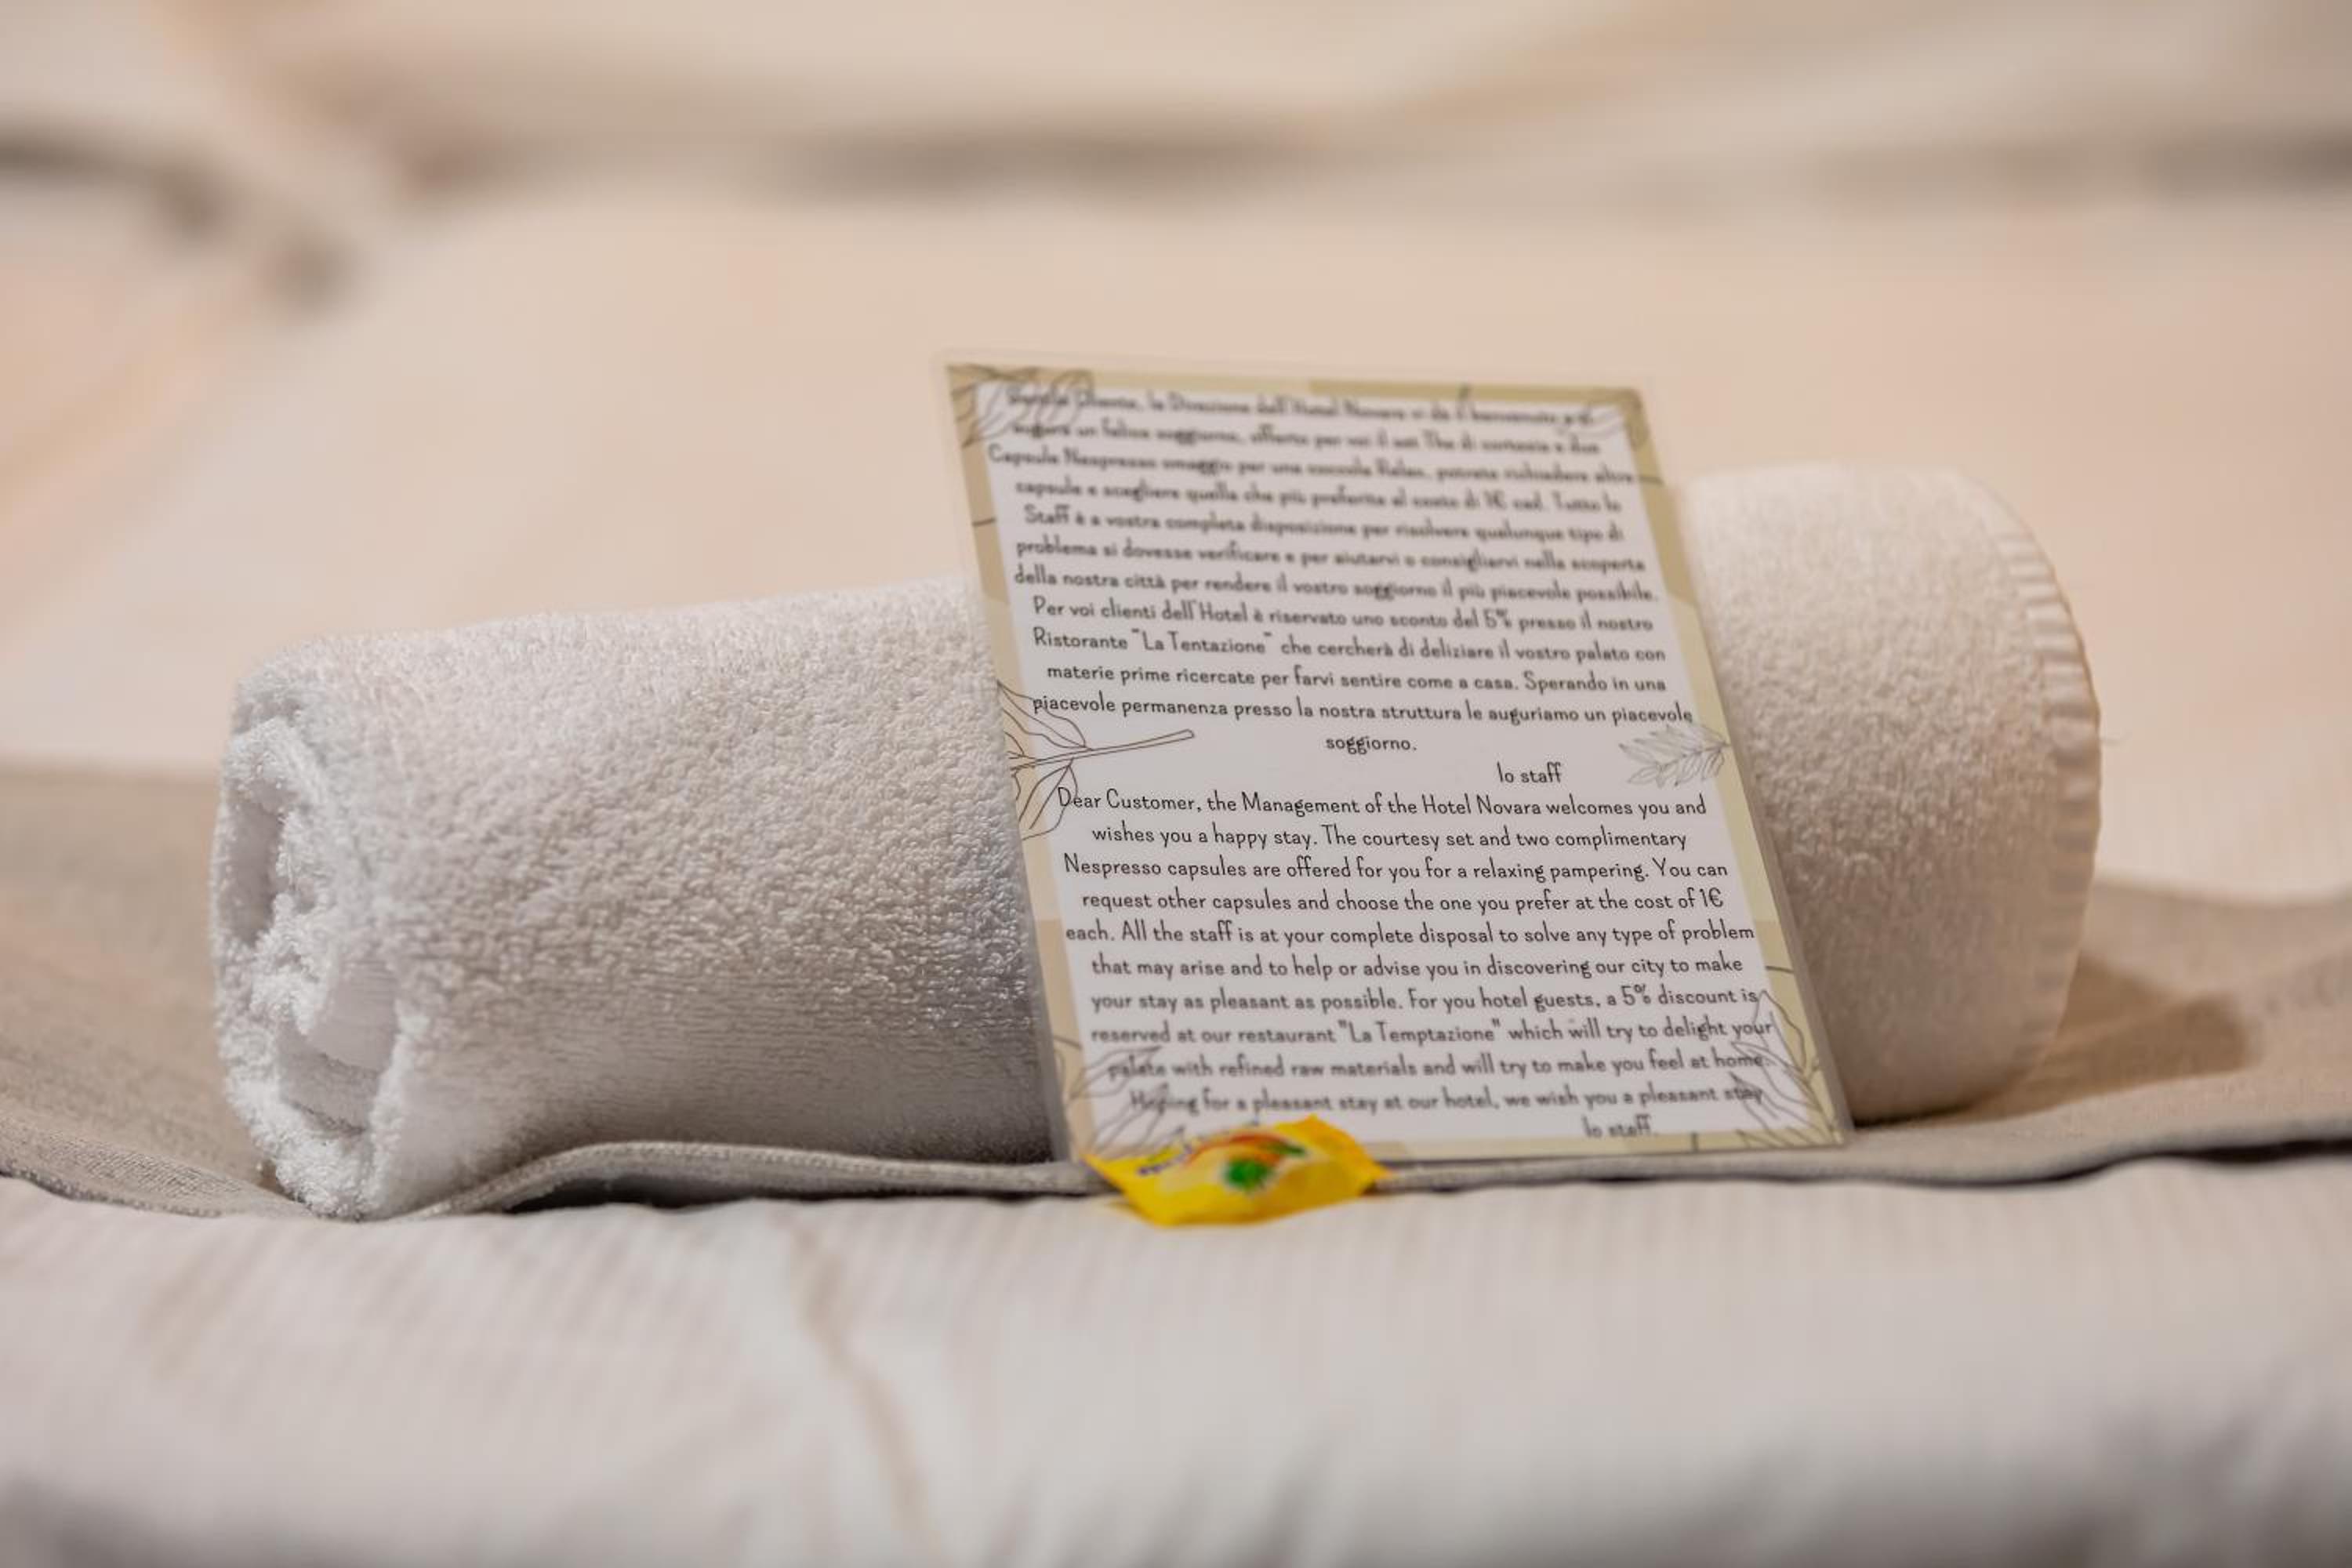 Gentile Cliente, la Direzione dell'Hotel Novara vi da il benvenuto e vi
augura un felice soggiorno, offerto per voi il set The di cortesia e due
Capsule Nespresso omaggio per una coccola Relax, potrete richiedere altre
capsule e scegliere quella che più preferite al costo di 1€ cad. Tutto lo
Staff è a vostra completa disposizione per risolvere qualunque tipo di
problema si dovesse verificare e per aiutarvi o consigliarvi nella scoperta
della nostra città per rendere il vostro soggiorno il più piacevole possibile.
Per voi clienti dell'Hotel è riservato uno sconto del 5% presso il nostro
Ristorante "La Tentazione" che cercherà di deliziare il vostro palato con
materie prime ricercate per farvi sentire come a casa. Sperando in una
piacevole permanenza presso la nostra struttura le auguriamo un piacevole
soggiorno.
lo staff
Dear Customer, the Management of the Hotel Novara welcomes you and
wishes you a happy stay. The courtesy set and two complimentary
Nespresso capsules are offered for you for a relaxing pampering. You can
request other capsules and choose the one you prefer at the cost of 1€
each. All the staff is at your complete disposal to solve any type of problem
that may arise and to help or advise you in discovering our city to make
your stay as pleasant as possible. For you hotel guests, a 5% discount is
reserved at our restaurant "La Temptazione" which will try to delight your
palate with refined raw materials and will try to make you feel at home.
Hoping for a pleasant stay at our hotel, we wish you a pleasant stay
lo staff.